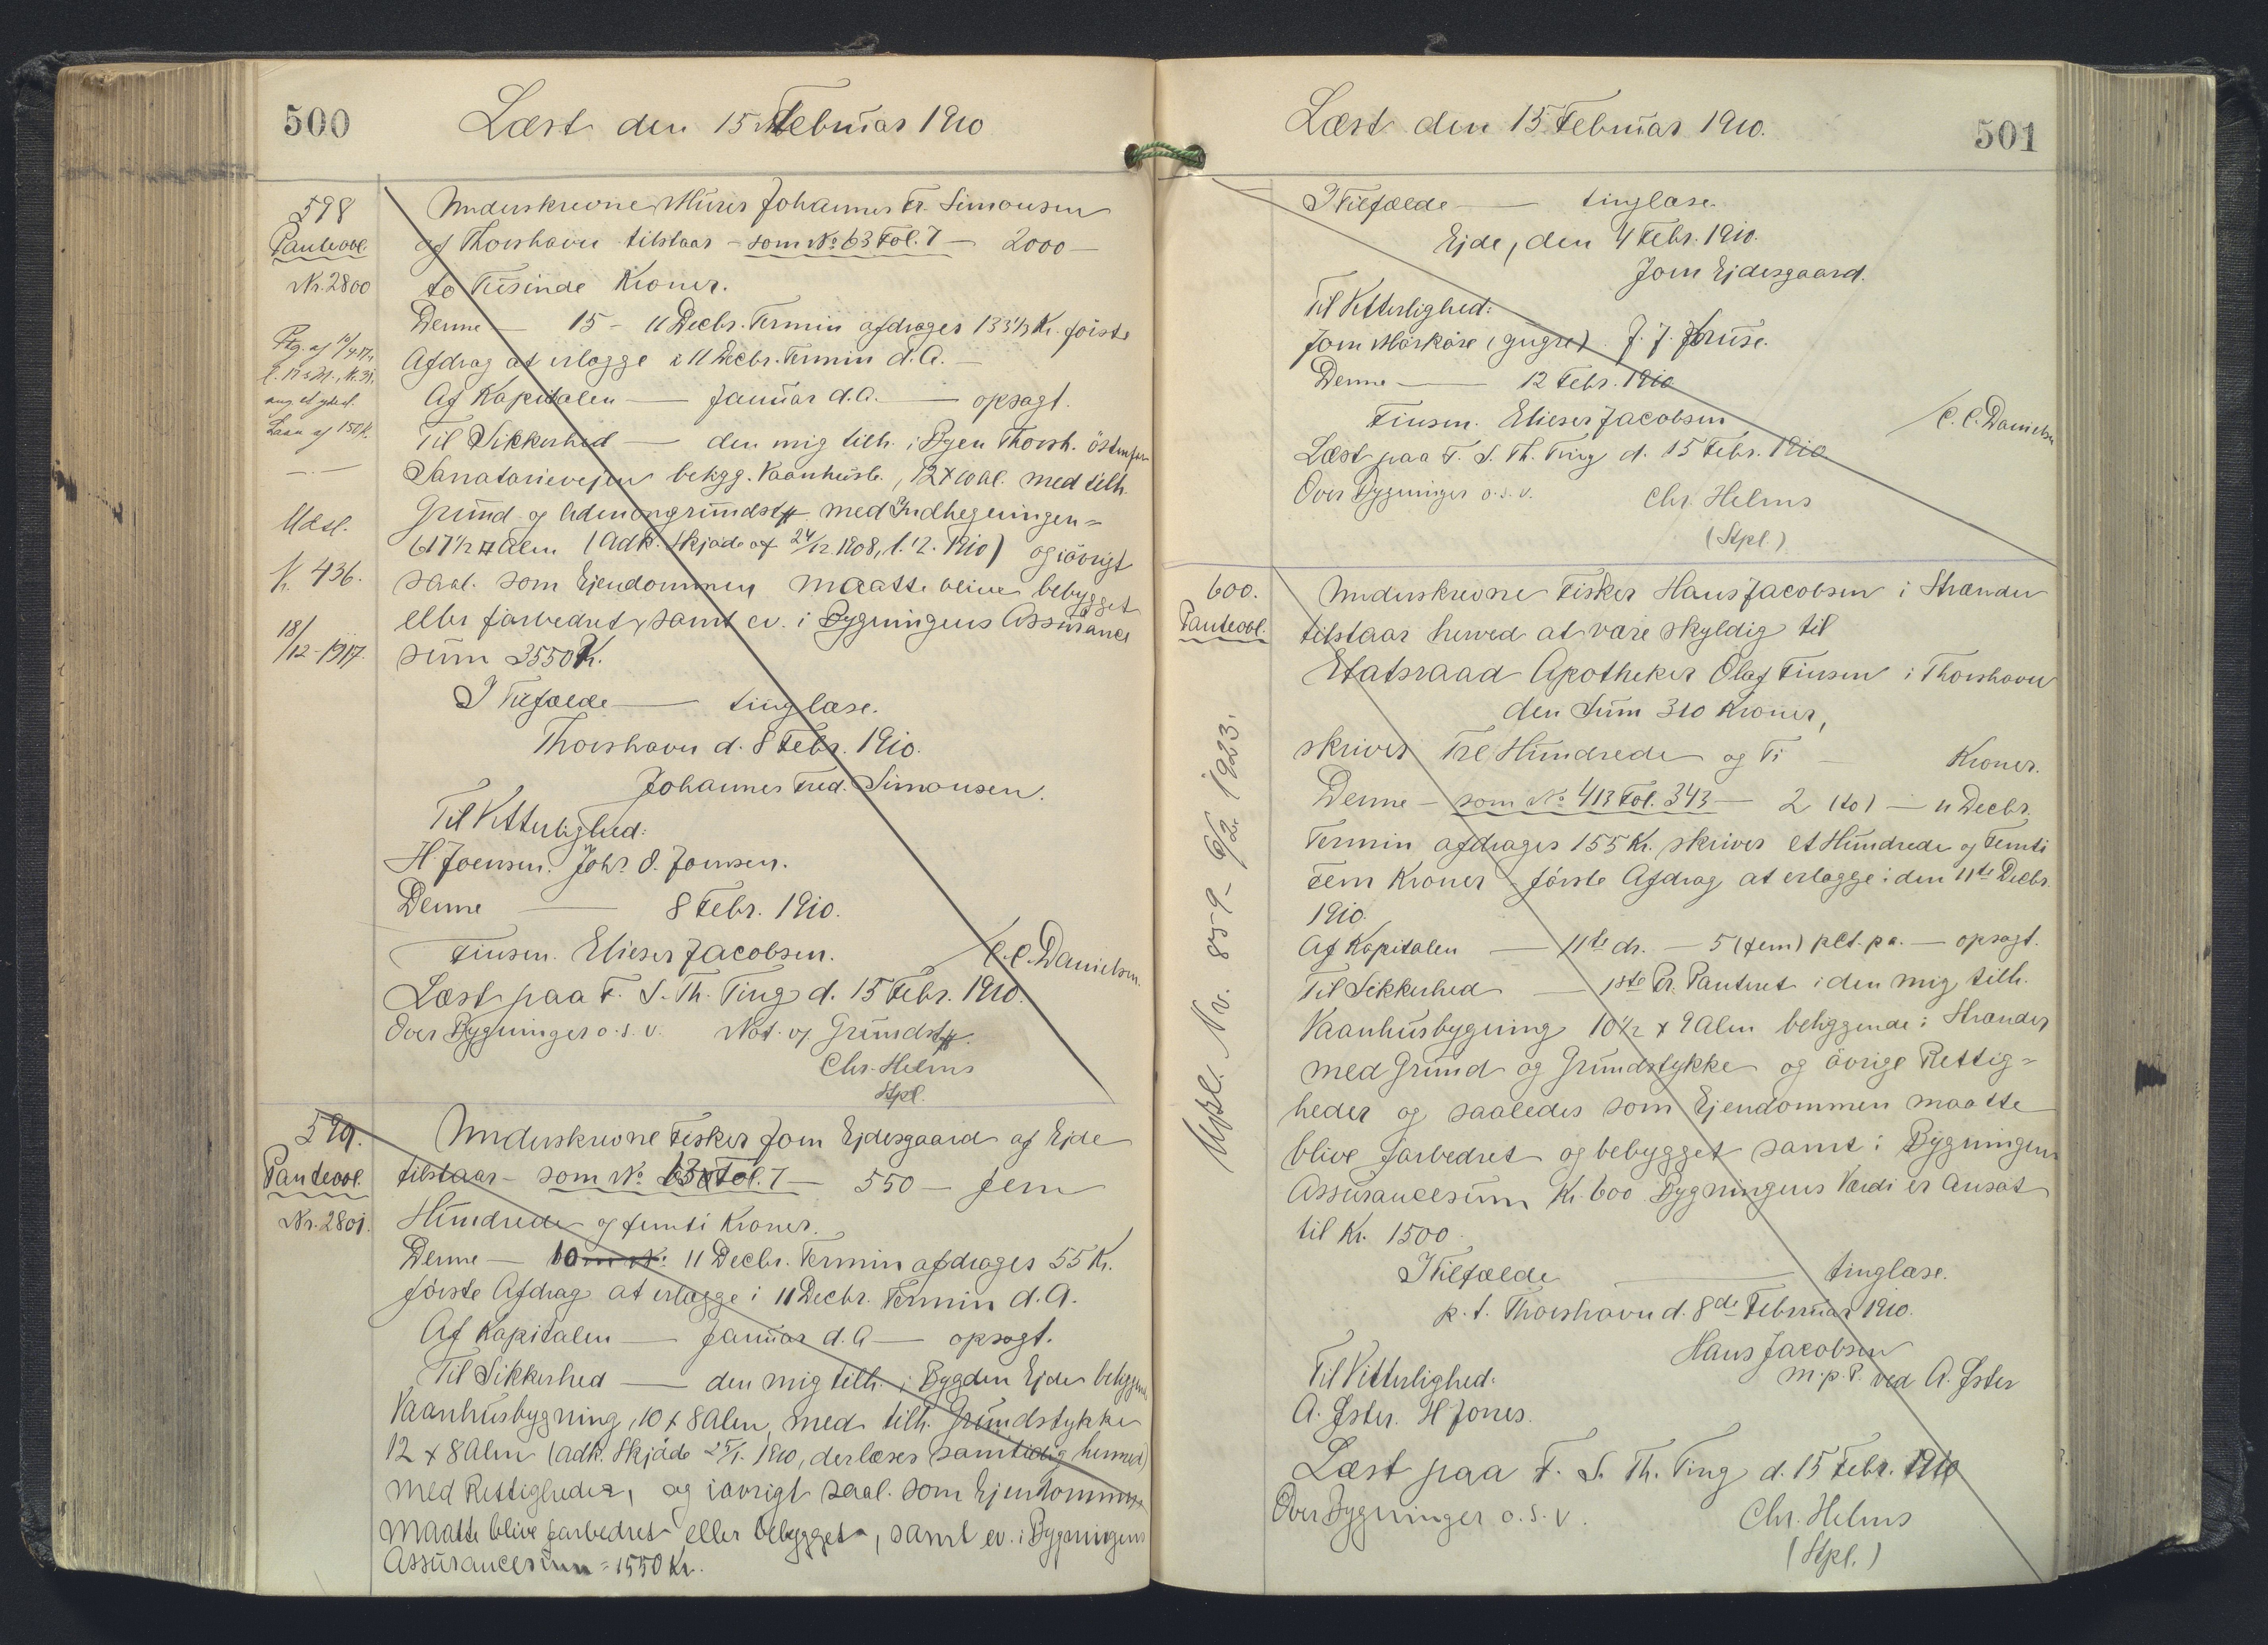 500
Læst den 15 Februar 1910
598
Panteobl.
Nr. 2800
Underskrevne Murer Johannes Fr. Simonsen
af Thorshavn tilstaar - som No 63 Fol. 7 - 2000 -
to Tusinde Kroner.
Denne - 15 - 11 Decbr. Termin afdrages 133 1/3 Kr. første
Afdrag at erlægge i 11 Decbr. Termin d.A. -
Af Kapitalen - Januar d.A. - opsagt.
Laan af 150 Kr.
Til Sikkerhed - den mig tilh. i Byen Thorsh. østenfor
Sanatorievejen beligg. Vaanhusb., 12 x 10 Al. med tilh.
Grund og udenomgrundst. med Indhegningen =
617 1/2 □ Alen (Adk. Skjøde af 24/12 1908, l. 1910) og iøvrigt
saal. som Ejendommen maatte blive bebygget
eller forbedret, samt ev. i Bygningens Assurance
sum 3550 Kr.
Udsl.
Nr. 436.
18/12-1917.
I Tilfælde - tinglæse.
Thorshavn d. 8 Febr. 1910.
Johannes Fred. Simonsen.
Til Vitterlighed:
H. Joensen. Johs. O. Joensen.
Denne - 8 Febr. 1910.
Finsen. Elieser Jacobsen. C.C. Danielsen.
Læst paa F. S. Th. Ting d. 15 Febr. 1910.
Over Bygninger o.s.v. Not. og Grundst.
Chr. Helms
Stpl.
599.
Panteobl.
Nr. 2801.
Underskrevne Fisker Joen Ejdesgaard af Ejde
tilstaar - som No 63 Fol. 7 - 550 - fem
Hundrede og femti Kroner.
Denne - 10 11 Decbr. Termin afdrages 55 Kr.
første Afdrag at erlægge i 11 Decbr. Termin d.A.
Af Kapitalen - Januar d.A - opsagt.
Til Sikkerhed - den mig tilh. i Bygden Ejde beliggende
Vaanhusbygning, 10 x 8 Alen, med tilh. Grundstykke
12 x 8 Alen (adk. Skjøde 25/1. 1910, der læses samtidig hermed)
med Rettigheder, og iøvrigt saal. som Ejendommen
maatte blive forbedret eller bebygget, samt ev. i Bygningens
Assurancesum = 1550 Kr.
Læst den 15 Februar 1910.
501
I Tilfælde - tinglæse.
Ejde, den 4 Febr. 1910.
Joen Ejdesgaard.
Til Vitterlighed:
Joen Mørkøre (gugre). J. J. Kruse.
Denne - 12 Febr. 1910
Finsen. Elieser Jacobsen C.C. Danielsen
Læst paa F. S. Th. Ting d. 15 Febr. 1910
Over Bygninger o.s.v. Chr. Helms
(Stpl.)
600.
Panteobl.
Udsl. Nr. 859 - 6/2 1923.
Underskrevne Fisker Hans Jacobsen i Strænder
tilstaar herved at være skyldig til
Etatsraad Apotheker Olaf Finsen i Thorshavn
den Sum 310 Kroner,
skriver Tre Hundrede og Ti - Kroner.
Denne - som No 413 Fol. 343 - 2 (to) - 11 Decbr.
Termin afdrages 155 Kr. skriver et Hundrede og Femti
Fem Kroner - første Afdrag at erlægge i den 11te Decbr.
1910.
Af Kapitalen - 11te ds. - 5 (fem) pCt. p.a. - opsagt.
Til Sikkerhed - 1ste Pr. Panteret i den mig tilh.
Vaanhusbygning 10 1/2 x 9 Alen beliggende i Strænder
med Grund og Grundstykke og øvrige Rettig-
heder og saaledes som Ejendommen maatte
blive forbedret og bebygget samt i Bygningens
Assurancesum Kr. 600 Bygningens Værdi er Ansat
til Kr. 1500.
I Tilfælde - tinglæse.
p.t. Thorshavn d. 8de Februar 1910.
Hans Jacobsen
m.p.P. ved A. Øster
Til Vitterlighed:
A. Øster. H Jones.
Læst paa F. S. Th. Ting d. 15 Febr. 1910
Over Bygninger o.s.v. Chr. Helms
(Stpl.)